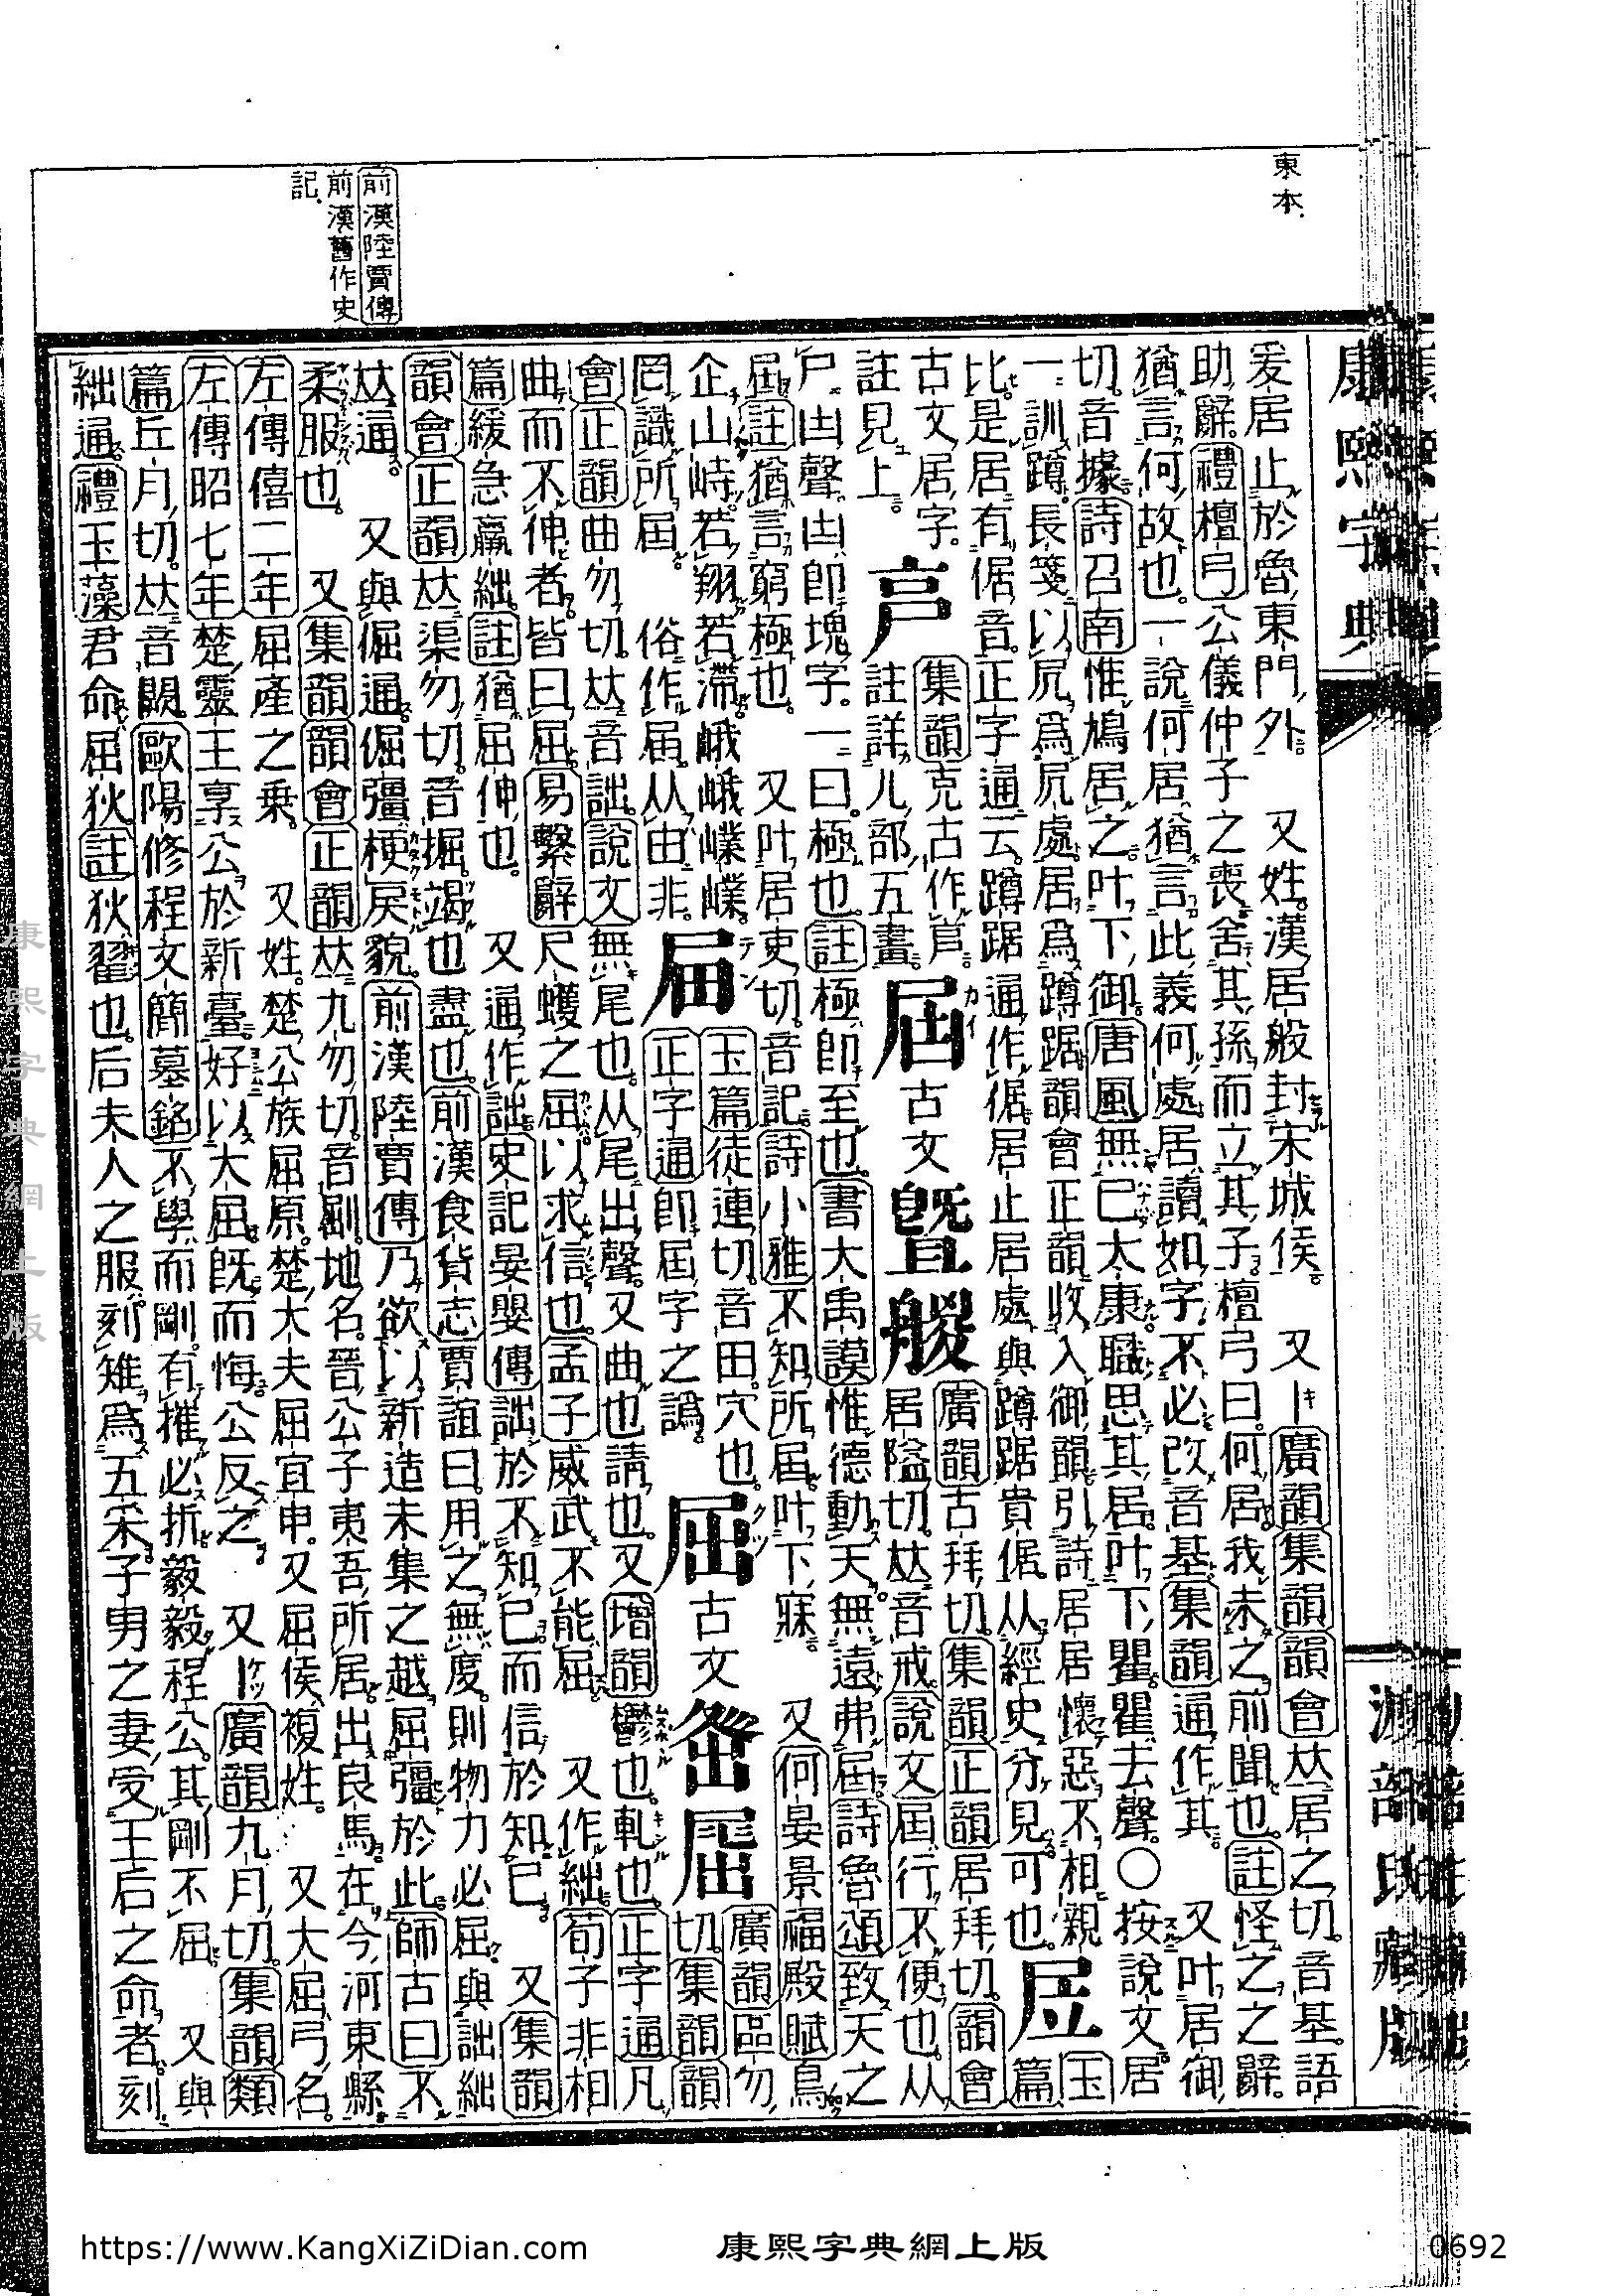 東本
前漢陸賈傳
前漢舊作史
記
康熙字典
爰居止於魯東門外。 又姓。漢居般封宋城侯。 又丨廣韻集韻韻會𠀤居之切。音基。語
助辭。禮檀弓公儀仲子之喪舍其孫而立其子檀弓曰。何居。我未之前聞也。註怪之之辭。
猶言何故也。一說何居猶言此義何處居讀如字不必改音基。集韻通作其。 又叶居御
切。音據。詩召南惟鳩居之叶下御。唐風無已太康職思其居。叶下瞿。瞿去聲。○按說文居
一訓蹲。長箋以凥爲凥處。居爲蹲踞。韻會正韻收入御韻引詩居居懷惡不相親
比。是居有倨音。正字通云。蹲踞通作倨。居止居處與蹲踞貴倨。从經史分見可也。 㞐 玉篇
古文居字。 集韻克古作
註見上。 註詳儿部五畫。
屆 古文 廣韻古拜切。集韻正韻居拜切。韻會
居隘切。𠀤音戒。說文屆行不便也。从
尸凷聲。凷卽塊字。一曰。極也。註極卽至也。書大禹謨惟德動天。無遠弗屆。詩魯頌致天之
屆註猶言窮極也。 又叶居吏切。音記。詩小雅不知所屆。叶下寐。 又何晏景福殿賦鳥
企山峙。若翔若滯峨峨嶫嶫。
罔識所屆。 俗作届。从由非。
玉篇徒連切。音田。穴也。
正字通卽屆字之譌。
屈 古文 廣韻區勿
切。集韻韻
會正韻曲勿切。𠀤音詘。說文無尾也。从尾出聲。又曲也請也。又增韻鬱也。軋也。正字通凡
曲而不伸者。皆曰屈。易繫辭尺蠖之屈以求信也。孟子威武不能屈。 又作絀。荀子非相
篇緩急嬴絀。註猶屈伸也。 又通作詘。史記晏嬰傳詘於不知己而信於知己。 又集韻
韻會正韻𠀤渠勿切。音掘。竭也盡也。前漢食貨志賈誼曰。用之無度。則物力必屈。與詘絀
𠀤通。 又與倔通。倔彊梗戾貌。前漢陸賈傳乃欲以新造未集之越屈彊於此。師古曰不
柔服也。 又集韻韻會正韻𠀤九勿切。音劂。地名。晉公子夷吾所居。出良馬。在今河東縣
左傳僖二年屈產之乗。 又姓。楚公族屈原。楚大夫屈宜申。又屈侯複姓。 又大屈弓名。
左傳昭七年楚靈王享公於新臺。好以大屈。旣而悔。公反之。 又丨廣韻九月切。集韻類
篇丘月切。𠀤音闕。歐陽修程文簡墓銘不學而剛。有摧必折毅毅程公。其剛不屈。 又與
絀通。禮玉藻君命屈狄。註狄翟也。后夫人之服刻雉爲五采。子男之妻受王后之命者。刻
康熙字典網上版
https://www.KangXiZiDian.com
康熙字典網上版
0692